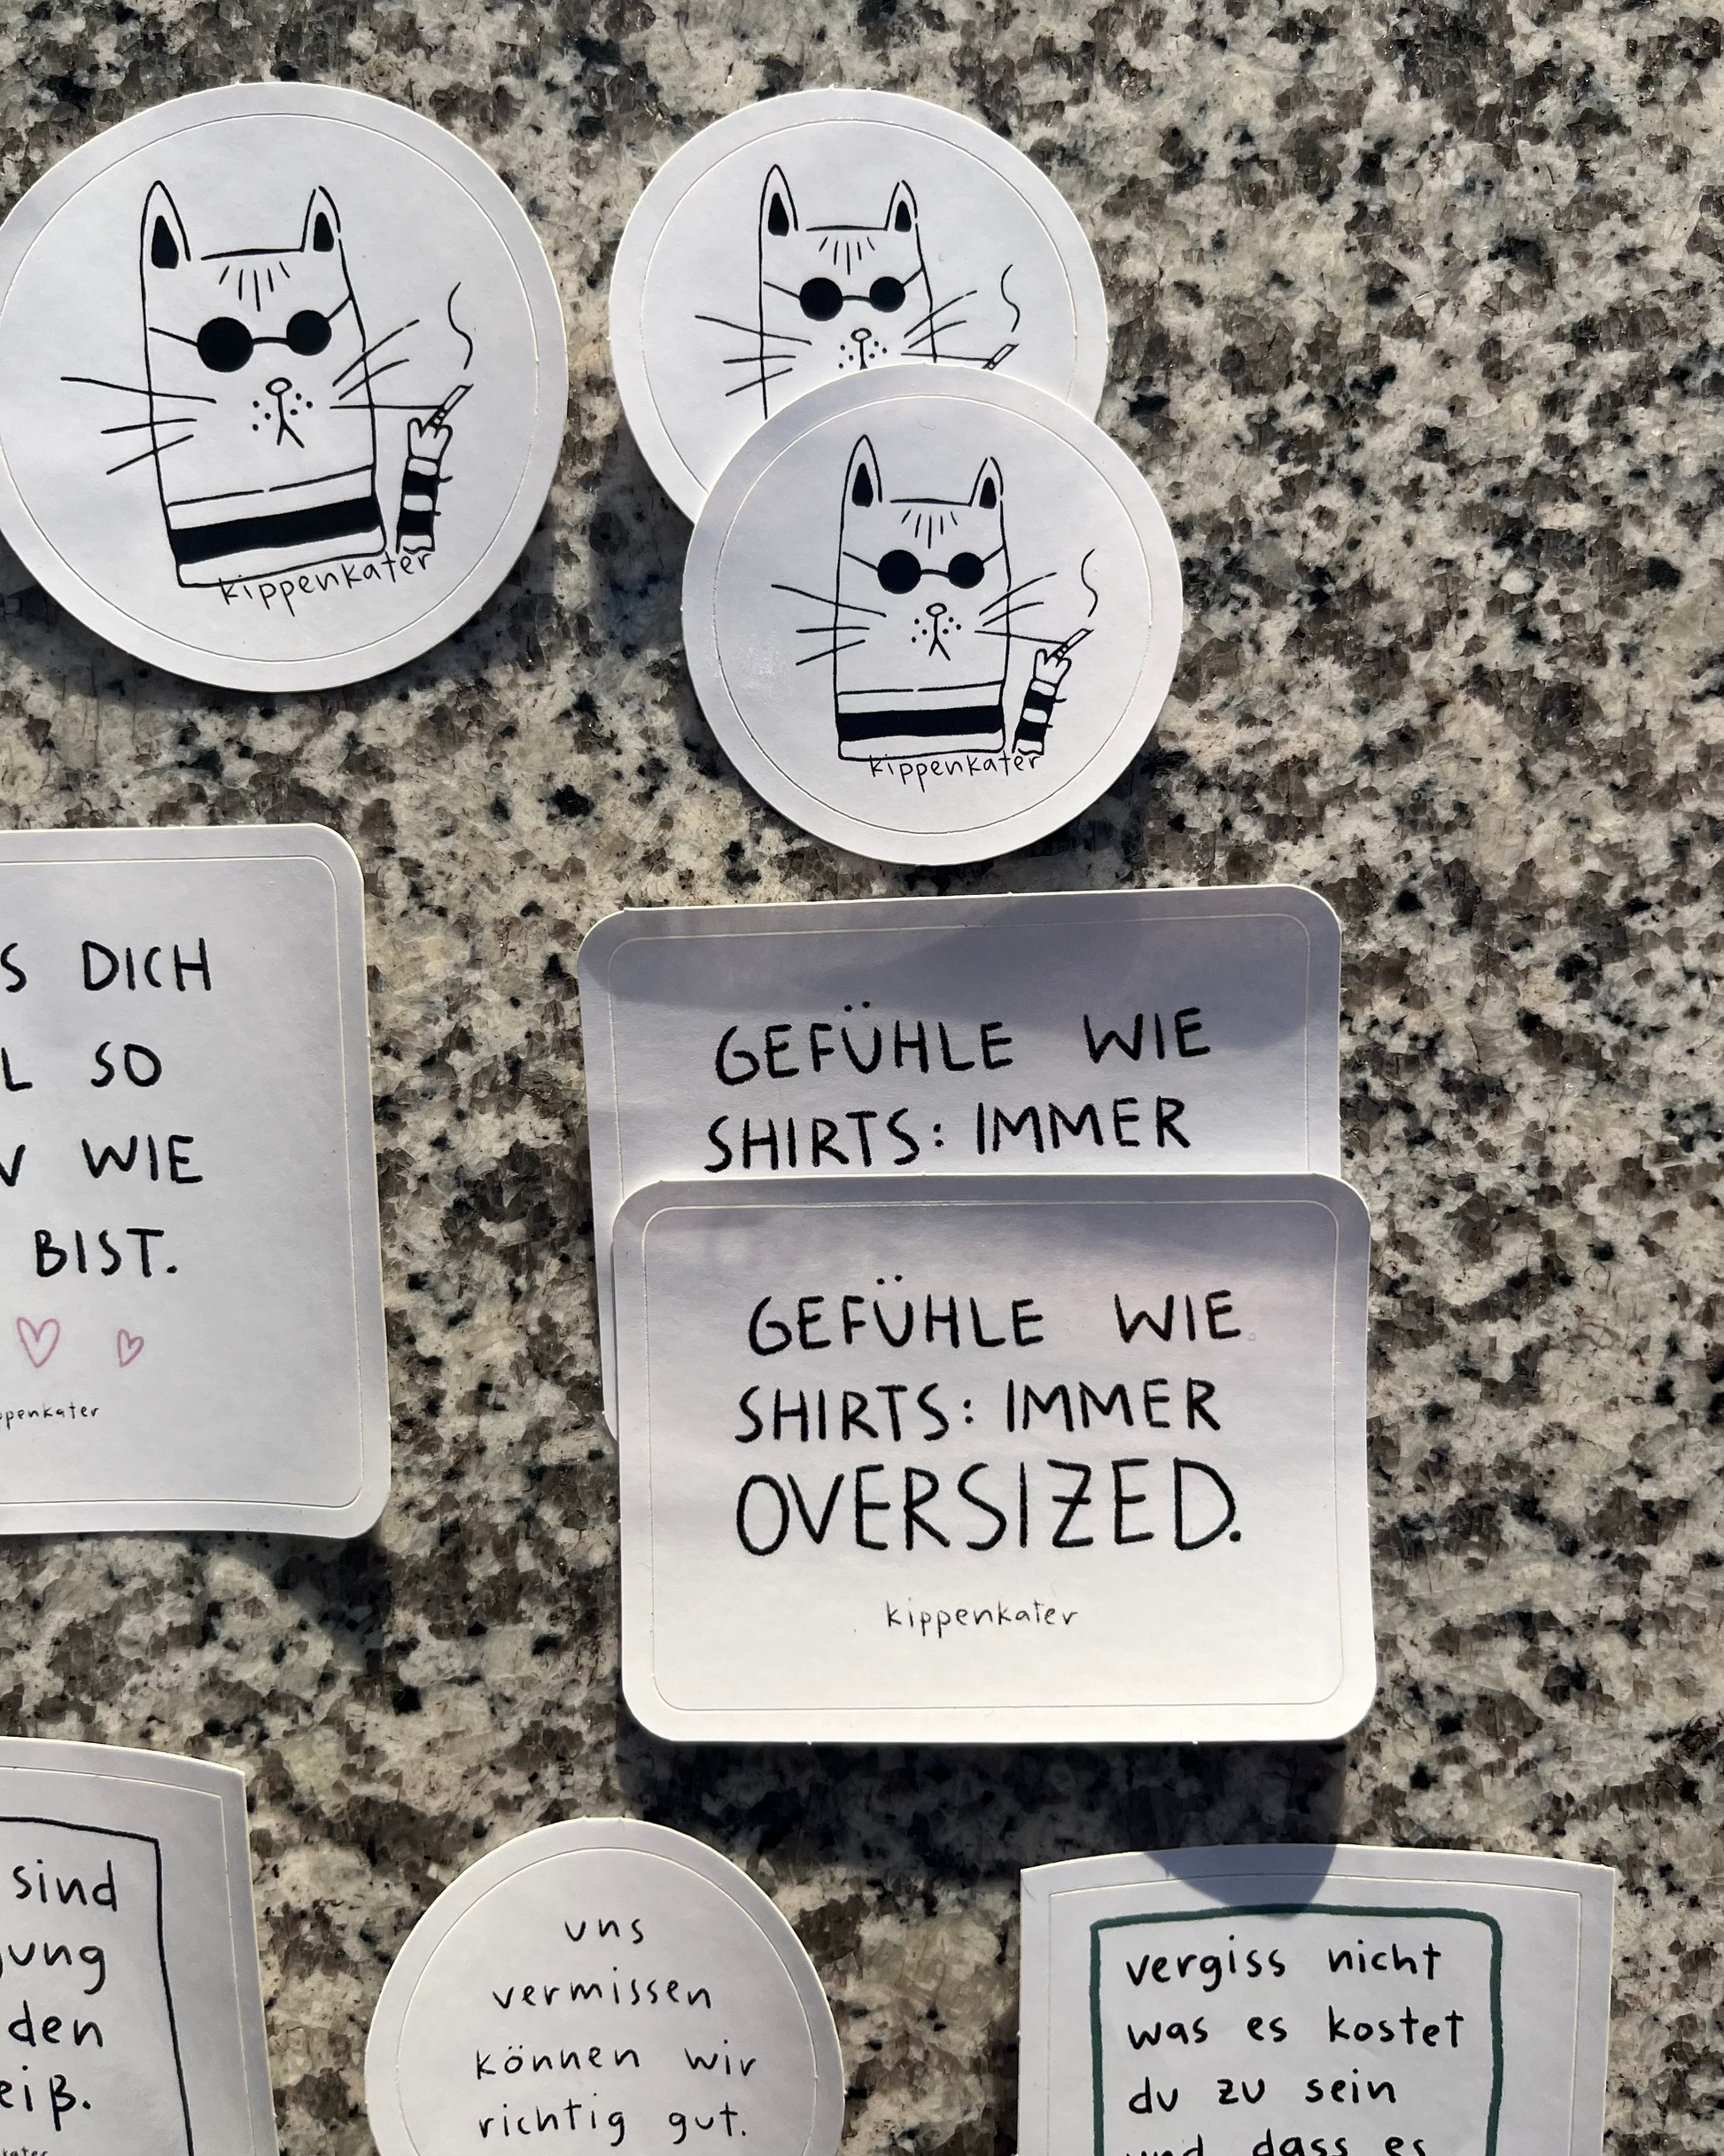 kippenkater
kippenkater
DICH
SO
WIE
BIST.
GEFÜHLE WIE
SHIRTS: IMMER
GEFÜHLE WIE
SHIRTS: IMMER
OVERSIZED.
kippenkater
sind
den
uns
vermissen
können wir
richtig gut.
vergiss nicht
was es kostet
du zu sein
und dass es